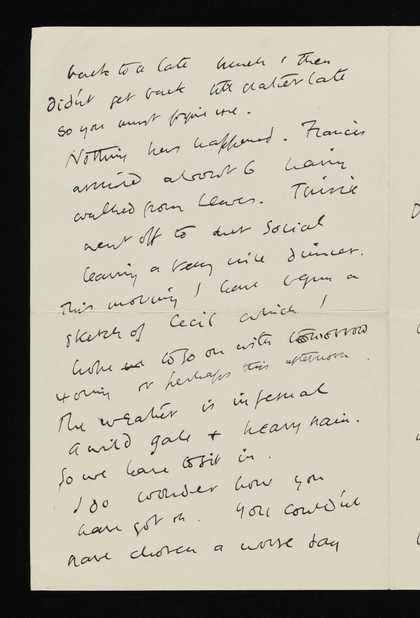 back to a late lunch & then
didn't get back till rather late
so you must forgive me.
Nothing has happened. Francis
arrived about 6 having
walked from Lewes.
went off to her Social
leaving a very nice dinner.
This morning I have begun a
sketch of Cecil which I
hope to go on with tomorrow
morning or perhaps this afternoon.
The weather is infernal
a wild gale + heavy rain.
So we have to sit in.
I do wonder how you
have got on. You couldn't
have chosen a worse day